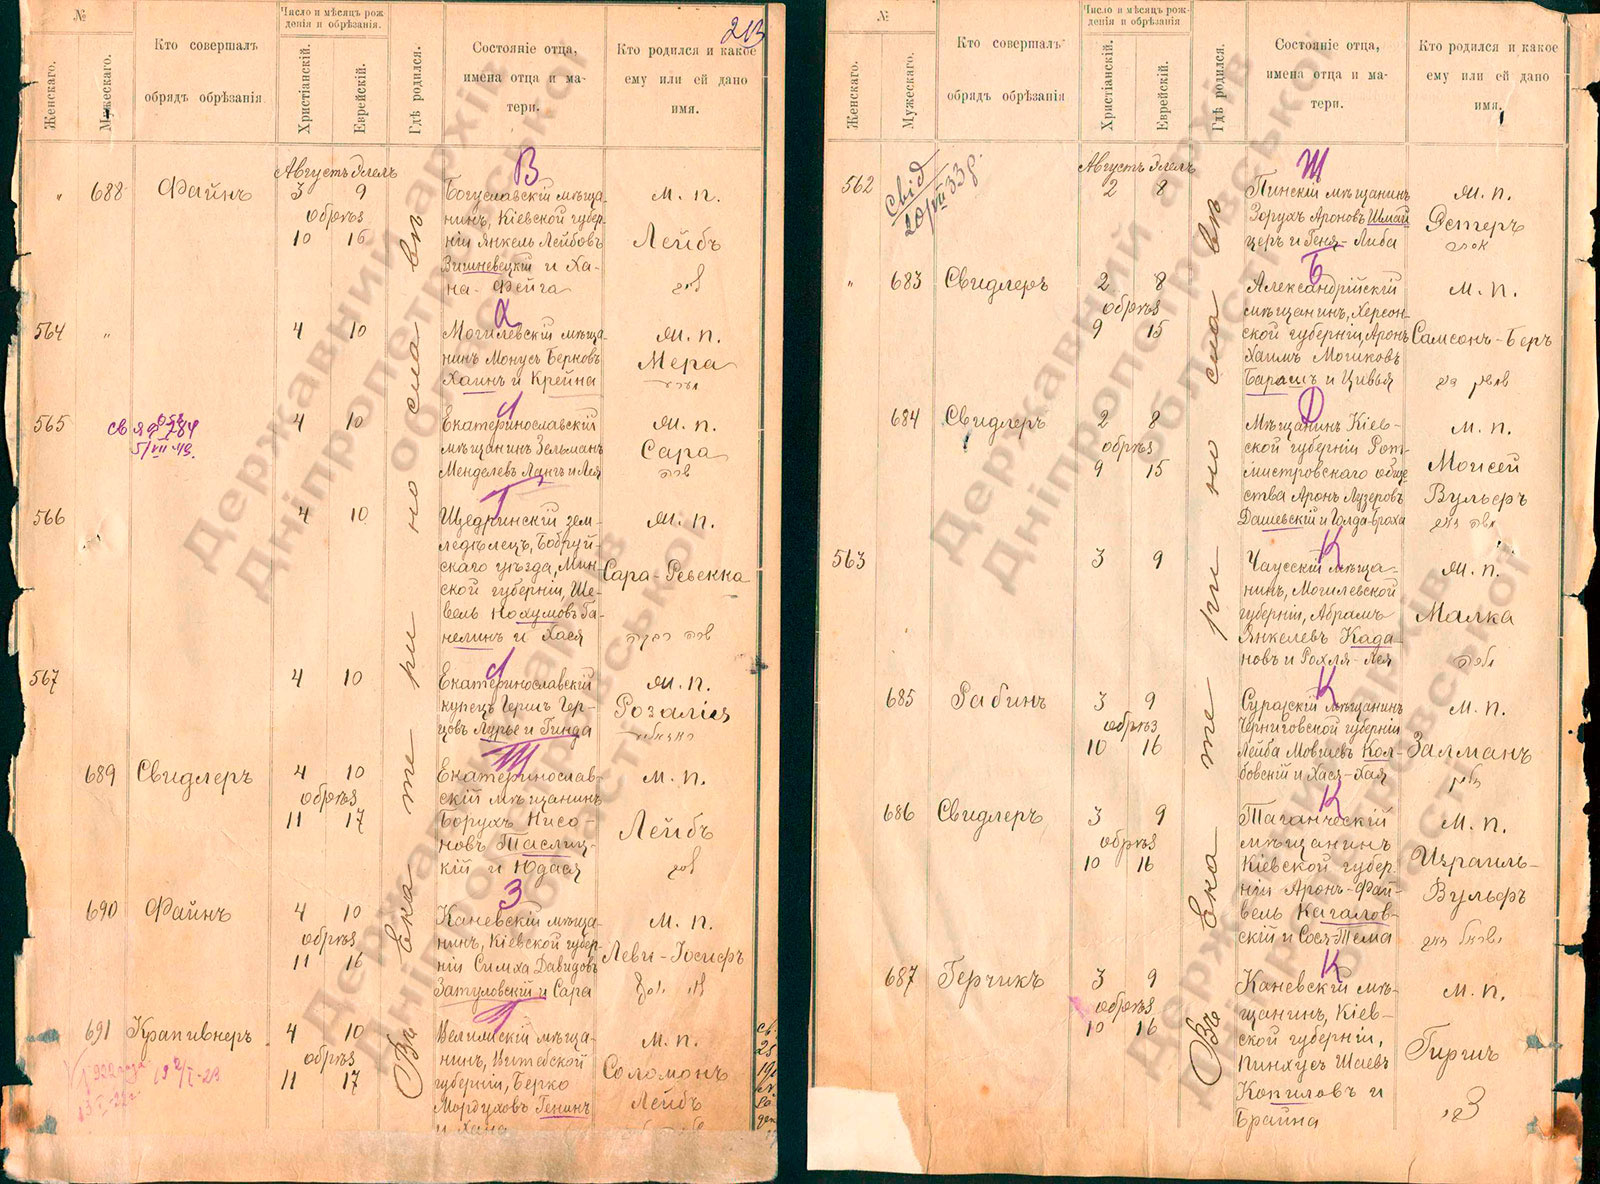 213
№
Женскаго.
Мужескаго.
Кто совершалъ
обрядъ обрѣзанія
Число и мѣсяцъ рож
денія и обрѣзанія.
Христіанскій.
Еврейскій.
Гдѣ родился.
Состояніе отца,
имена отца и ма-
тери.
Кто родился и какое
ему или ей дано
имя.
Августъ Элелъ
В
" 688 Файнъ 3 9
обрѣз
10 16
Богуславскій мѣща-
нинъ, Кіевской губер-
ніи Янкель Лейбовъ
Вишневецкій и Ха-
на-Фейга
м. п.
Лейбъ
564 " 4 10
Могилевскій мѣща-
нинъ Монусъ Берковъ
Хаинъ и Крейна
м. п.
Мера
565 4 10
5/VII 49.
Екатеринославскій
мѣщанинъ Зельманъ
Менделевъ Лангъ и Лея
м. п.
Сара
566 4 10
Г
Щедринскій зем-
ледѣлецъ, Бобруй-
скаго уѣзда, Мин-
ской губерніи, Ше-
вель Нохумовъ Га-
нелинъ и Хася
м. п.
Сара-Ревекка
567 4 10
Екатеринославскій
купецъ Гершъ Гер-
цовъ Лурье и Гинда
м. п.
Розалія
689 Свидлеръ 4 10
обрѣз
11 17
Екатеринослав-
скій мѣщанинъ
Борухъ Нисо-
новъ Таслиц-
кій и Юдася
м. п.
Лейбъ
З
690 Файнъ 4 10
обрѣз
11 16
Каневскій мѣща-
нинъ, Кіевской губер-
ніи Симха Давидовъ
Затуловскій и Сара
м. п.
Леви-Іосифъ
691 Крапивнеръ 4 10
обрѣз
11 17
Велижскій мѣща-
нинъ, Витебской
губерніи, Берко
Мордуховъ Генинъ
и Хана
м. п.
Соломонъ-
Лейбъ
Въ Екатеринославѣ
№
Женскаго.
Мужескаго.
Кто совершалъ
обрядъ обрѣзанія
Число и мѣсяцъ рож-
денія и обрѣзанія
Христіанскій.
Еврейскій.
Гдѣ родился.
Состояніе отца,
имена отца и ма-
тери.
Кто родился и какое
ему или ей дано
имя.
Августъ Элелъ
Ш
562 2 8
Свід
20/VII 33 р.
Пинскій мѣщанинъ
Зорухъ Ароновъ Шмай
церъ и Геня-Либа
м. п.
Эстеръ
Б
" 683 Свидлеръ 2 8
обрѣз
9 15
Александрійскій
мѣщанинъ, Херсон-
ской губерніи Аронъ
Хаимъ Мошковъ
Барашъ и Цивья
м. п.
Самсонъ-Беръ
Д
684 Свидлеръ 2 8
обрѣз
9 15
Мѣщанинъ Кіев-
ской губерніи Рот-
мистровскаго обще
ства Аронъ Лузеровъ
Дашевскій и Голда-Броха
м. п.
Моисей
Вульфъ
К
563 3 9
Чаусскій мѣща-
нинъ, Могилевской
губерніи, Абрамъ
Янкелевъ Када-
новъ и Рохля-Лея
м. п.
Малка
К
685 Рабинъ 3 9
обрѣз
10 16
Суражскій мѣщанинъ
Черниговской губерніи
Лейба Мовшевъ Кол-
бовскій и Хася-Хая
м. п.
Залманъ
К
686 Свидлеръ 3 9
обрѣз
10 16
Таганческій
мѣщанинъ
Кіевской губер-
ніи Аронъ-Фай-
вель Кагалов-
скій и Сося-Тема
м. п.
Израиль-
Вульфъ
К
687 Герчикъ 3 9
обрѣз
10 16
Каневскій мѣ-
щанинъ, Кіев-
ской губерніи,
Пинхусъ Шаевъ
Копиловъ и
Брайна
м. п.
Гиршъ
Въ Екатеринославѣ
Державний архів
Дніпропетровської
області